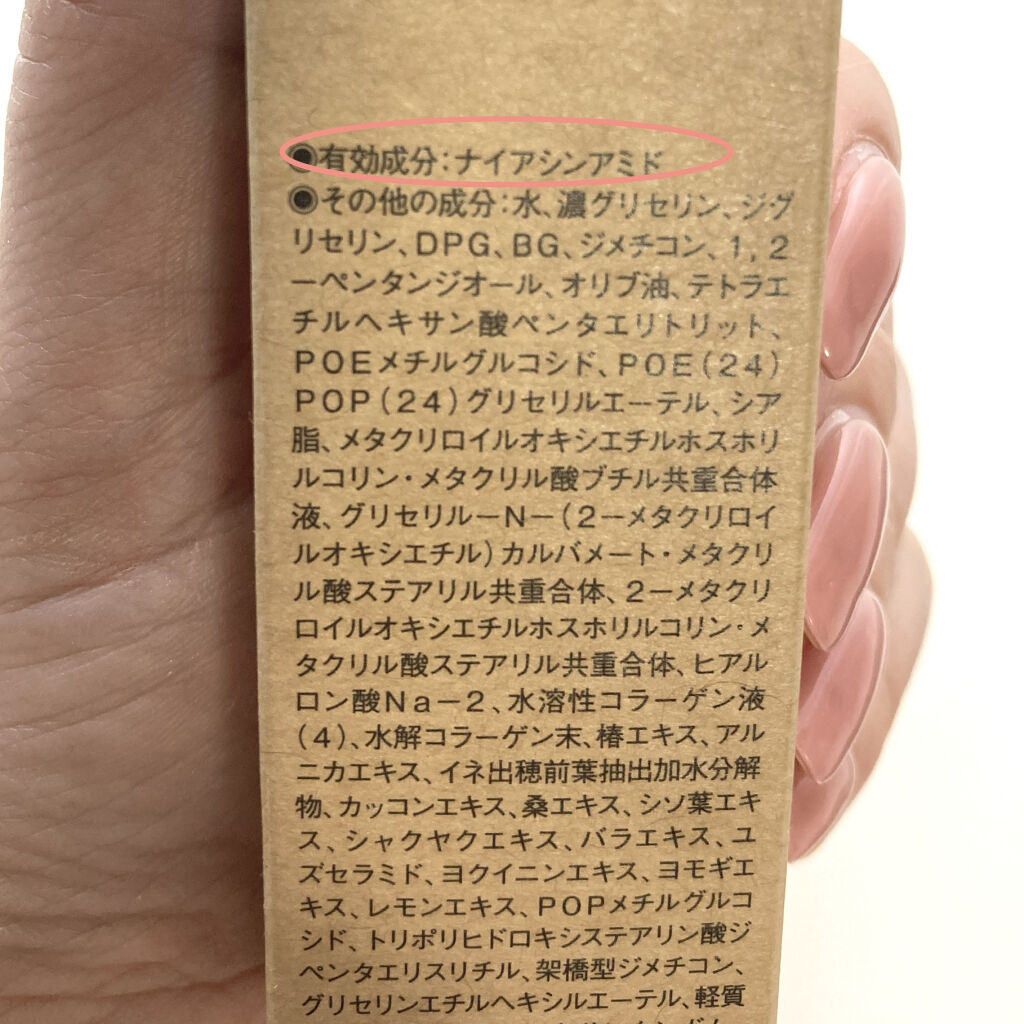 ◉有効成分：ナイアシンアミド
◉その他の成分：水、濃グリセリン、ジグ
リセリン、DPG、BG、ジメチコン、1,2
ーペンタンジオール、オリブ油、テトラエ
チルヘキサン酸ペンタエリトリット、
POEメチルグルコシド、POE(24)
POP(24)グリセリルエーテル、シア
脂、メタクリロイルオキシエチルホスホリ
ルコリン・メタクリル酸ブチル共重合体
液、グリセリルーNー(2ーメタクリロイ
ルオキシエチル)カルバメート・メタクリ
ル酸ステアリル共重合体、2ーメタクリ
ロイルオキシエチルホスホリルコリン・メ
タクリル酸ステアリル共重合体、ヒアル
ロン酸Naー2、水溶性コラーゲン液
(4)、水解コラーゲン末、椿エキス、アル
ニカエキス、イネ出穂前葉抽出加水分解
物、カッコンエキス、桑エキス、シソ葉エキ
ス、シャクヤクエキス、バラエキス、ユ
ズセラミド、ヨクイニンエキス、ヨモギエ
キス、レモンエキス、POPメチルグルコ
シド、トリポリヒドロキシステアリン酸ジ
ペンタエリスリチル、架橋型ジメチコン、
グリセリンエチルヘキシルエーテル、軽質